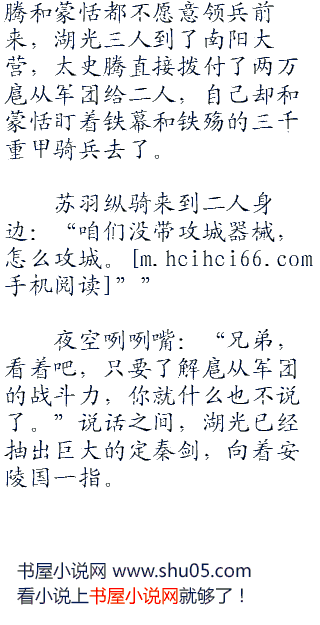 腾和蒙恬都不愿意领兵前
来，湖光三人到了南阳大
营，太史腾直接拨付了两万
扈从军团给二人，自己却和
蒙恬盯着铁幕和铁殇的三千
重甲骑兵去了。
苏羽纵骑来到二人身
边：“咱们没带攻城器械，
怎么攻城。[m.hcihci66.com
手机阅读]””
夜空咧咧嘴：“兄弟，
看着吧，只要了解扈从军团
的战斗力，你就什么也不说
了。”说话之间，湖光已经
抽出巨大的定秦剑，向着安
陵国一指。
书屋小说网 www.shu05.com
看小说上书屋小说网就够了！